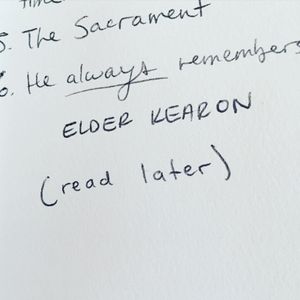 time
5. The Sacrament
6. He always remembers
ELDER KEARON
(read later)